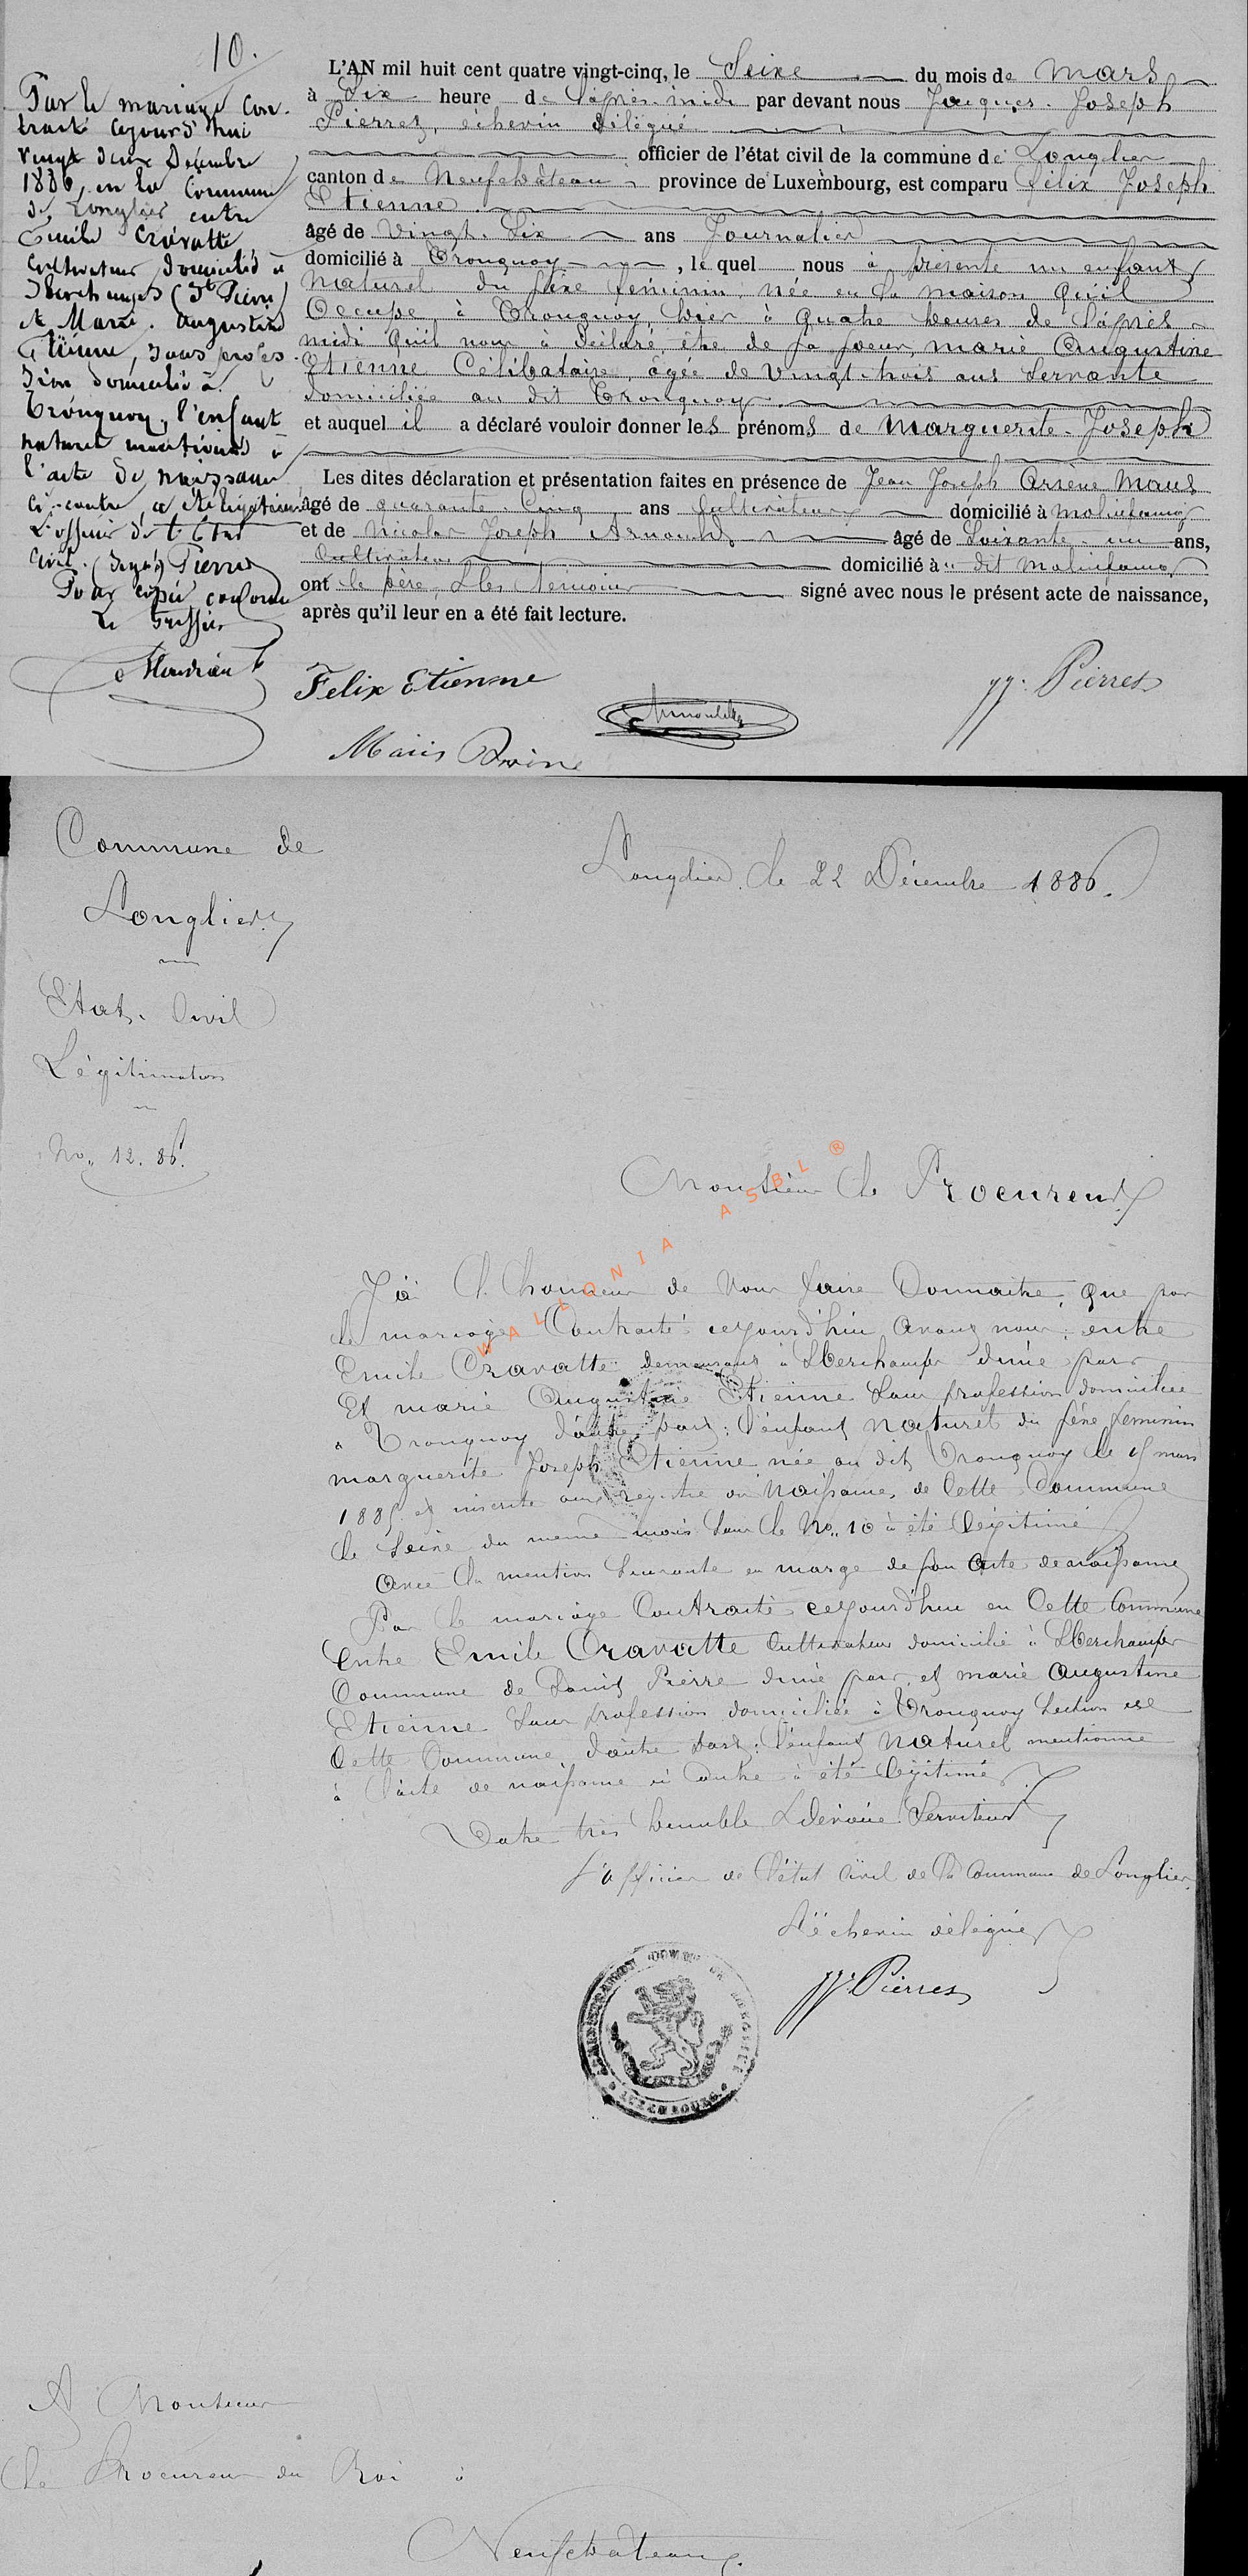 10.
Par le mariage con-
tracté cejourd'hui
vingt deux Décembre
1886, en la Commune
de Longlier entre
Emile Cravatte,
cultivateur domicilié à
(St Pierre)
et Marie Augustine
Etienne, sans profes-
sion domiciliée à
Tronquoy, l'enfant
naturel mentionné à
l'acte de naissance
ci-contre, a été légitimé
L'officier de l'Etat
Civil. (signé) Pierret
Pour copie conforme
Le Greffier
L'AN mil huit cent quatre vingt-cinq, le Seize du mois de Mars
à Six heure de l'après-midi par devant nous Jacques-Joseph
Pierret, échevin délégué
officier de l'état civil de la commune de Longlier
canton de Neufchâteau province de Luxembourg, est comparu félix Joseph
Etienne
âgé de Vingt-Six ans Journalier
domicilié à Tronquoy, le quel nous à présenté un enfant
Naturel du sexe féminin, née en la maison qu'il
Occupe à Tronquoy, hier à quatre heures de l'après-
midi qu'il nous à déclaré être de sa soeur, marie Augustine
Etienne Célibataire, âgée de Vingt-trois ans Servante
domiciliée au dit Tronquoy
et auquel il a déclaré vouloir donner les prénoms de Marguerite-Joseph
Les dites déclaration et présentation faites en présence de Jean Joseph Arsène Maus
âgé de quarante Cinq ans Cultivateur domicilié à molinfaing
et de Nicolas Joseph Arnould âgé de Soixante-un ans,
Cultivateur domicilié à dit Molinfaing
ont le père, & les témoins signé avec nous le présent acte de naissance,
après qu'il leur en a été fait lecture.
Felix Etienne
JJ. Pierret
Commune de
Longlier
Longlier, le 22 Décembre 1886.
Etat-Civil
Légitimation
No. 12.86.
Monsieur le Procureur
WALLONIA ASBL ®
J'ai l'honneur de vous faire Connaitre, que par
le mariage Contracté cejourd'hui avant nous, entre
Emile Cravatte demeurant à d'une part
Et marie Augustine Etienne sans profession domiciliée
à Tronquoy d'autre part: l'enfant naturel du séxe féminin
marguerite Joseph Etienne née au dit Tronquoy le 15 mars
1885 et inscrite aux registre de Naissance, de Cette Commune
le Seize du même mois sous le No. 10 à été légitimé
avec la mention suivante en marge de son acte de naissance
Par le mariage Contracté cejourd'hui en Cette Commune
Entre Emile Cravatte Cultivateur domicilié à
Commune de Saint Pierre d'une part, et marie Augustine
Etienne sans profession domiciliée à Tronquoy Section de
Cette Commune, d'autre part: l'enfant naturel mentionné
à l'acte de naissance ci contre à été légitimé
Votre très humble & dévoué Serviteur
L'officier de l'état civil de la Commune de Longlier
L'échevin délégué
JJ. Pierret
A Monsieur
Le Procureur du Roi à
Neufchateau.